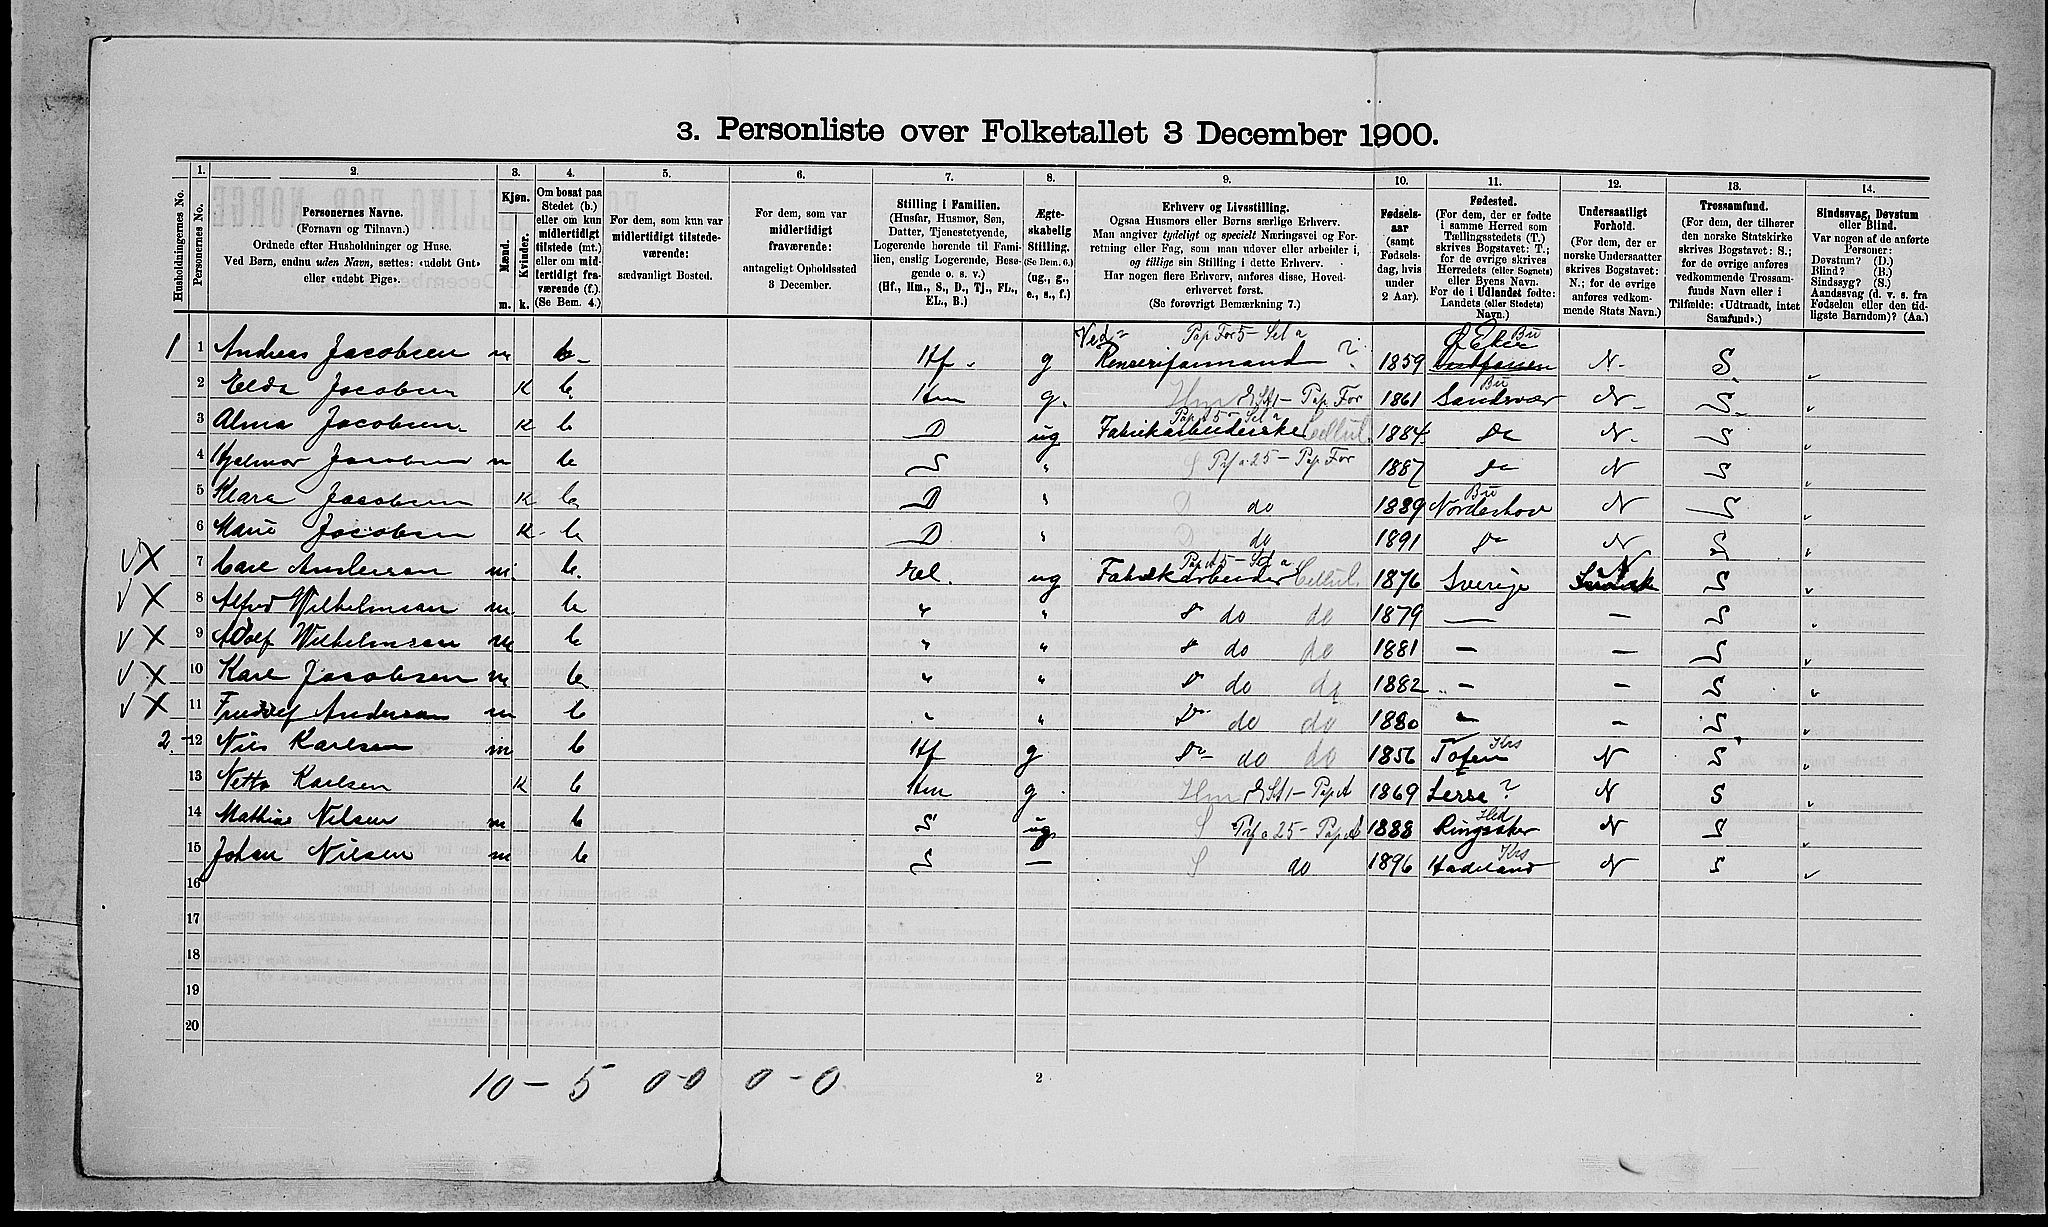 3. Personliste over Folketallet 3 December 1900.
Husholdningernes No.
1. Personernes No.
2. Personernes Navne. (Fornavn og Tilnavn.) Ordnede efter Husholdninger og Huse. Ved Børn, endnu uden Navn, sættes: «udøbt Gut» eller «udøbt Pige».
3. Kjøn. Mænd. m. Kvinder. k.
4. Om bosat paa Stedet (b.) eller om kun midlertidigt tilstede (mt.) eller om midlertidigt fraværende (f.). (Se Bem. 4.)
5. For dem, som kun var midlertidigt tilstedeværende: sædvanligt Bosted.
6. For dem, som var midlertidigt fraværende: antageligt Opholdssted 3 December.
7. Stilling i Familien. (Husfar, Husmor, Søn, Datter, Tjenestetyende, Logerende hørende til Familien, enslig Logerende, Besøgende o. s. v.) (Hf., Hm., S., D., Tj., FL., EL., B.)
8. Ægteskabelig Stilling. (Se Bem. 6.) (ug., g., e., s., f.)
9. Erhverv og Livsstilling. Ogsaa Husmors eller Børns særlige Erhverv. Man angiver tydeligt og specielt Næringsvei og Forretning eller Fag, som man udøver eller arbeider i, og tillige sin Stilling i dette Erhverv. Har nogen flere Erhverv, anføres disse, Hovederhvervet først. (Se forøvrigt Bemærkning 7.)
10. Fødselsaar (samt Fødselsdag, hvis under 2 Aar).
11. Fødested. (For dem, der er fødte i samme Herred som Tællingsstedets (T.) skrives Bogstavet: T.; for de øvrige skrives Herredets (eller Sognets) eller Byens Navn. For de i Udlandet fødte: Landets (eller Stedets) Navn.)
12. Undersaatligt Forhold. (For dem, der er norske Undersaatter skrives Bogstavet: N.; for de øvrige anføres vedkommende Stats Navn.)
13. Trossamfund. (For dem, der tilhører den norske Statskirke skrives Bogstavet: S.; for de øvrige anføres vedkommende Trossamfunds Navn eller i Tilfælde: «Udtraadt, intet Samfund».)
14. Sindssvag, Døvstum eller Blind. Var nogen af de anførte Personer: Døvstum? (D.) Blind? (B.) Sindssyg? (S.) Aandssvag (d. v. s. fra Fødselen eller den tidligste Barndom)? (Aa.)
Ved= Pap For 5 - Sel a Ø Eker Bu
1 1 Andreas Jacobsen m b. Hf. g Renseriformand ? 1859 N. S.
2 Elda Jacobsen K b. Hm g. Hm Pap. For 1861 Sandsvær Bu N. S.
3 Alma Jacobsen K b D ug Fabrikarbeiderske Cellul. 1884 do N. S
4 Hjalmar Jacobsen m b S " S Pap For 1887 do N S
5 Klara Jacobsen K b D " D do 1889 Norderhov Bu N S
6 Marie Jacobsen K b D " D do 1891 do N S
7 Carl Anderson m b. El. ug Fabrikarbeider Cellul. 1876 Sverige S
8 Alfred Wilhelmsen m b " " do do 1879 — — S
9 Adolf Wilhelmsen m b " " do do 1881 — — S
10 Karl Jacobsen m b " " do do 1882 — — S
11 Anderson m b " " do do 1880 — — S
2. 12 Nils Karlsen m b Hf g do do 1856 Toten Krs N S
13 Netta Karlsen K b Hm g Hm Pap A 1869 ? N S
14 Mathias Nilsen m b S ug S 1888 Ringsaker Hed N S
15 Johan Nilsen m b S — S do 1896 Hadeland Krs N S
16
17
18
19
20
10 - 5 0-0 0-0
2